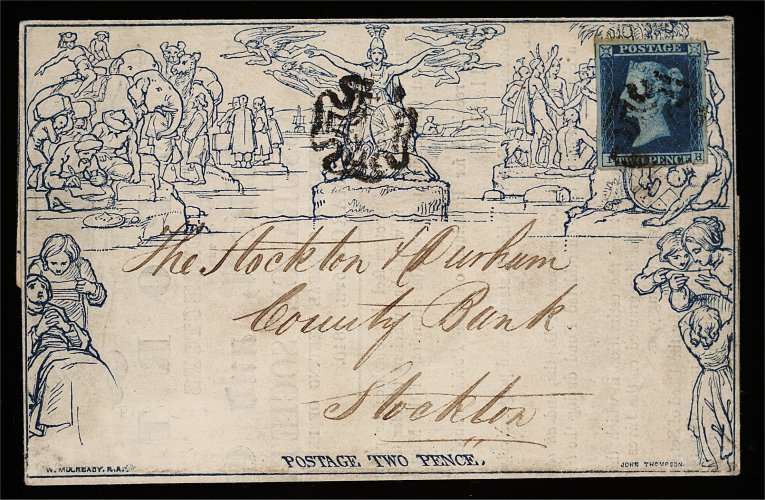 POSTAGE
TWO PENCE
H
The Stockton & Durham
County Bank
Stockton
POSTAGE TWO PENCE.
W. MULREADY. R.A.
JOHN THOMPSON.